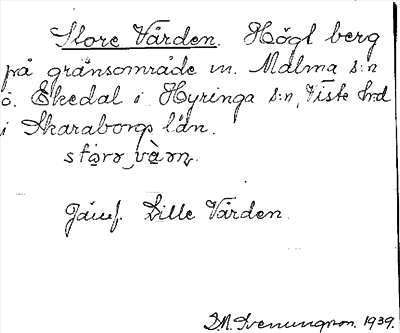 Store Vården. Högl berg
på gränsområde m. Malma s:n
ö. Ekedal i Hyringa s:n, Viste h:d
i Skaraborgs län.
stǫrə vàṛn.
Jämf. Lille Vården.
1939.